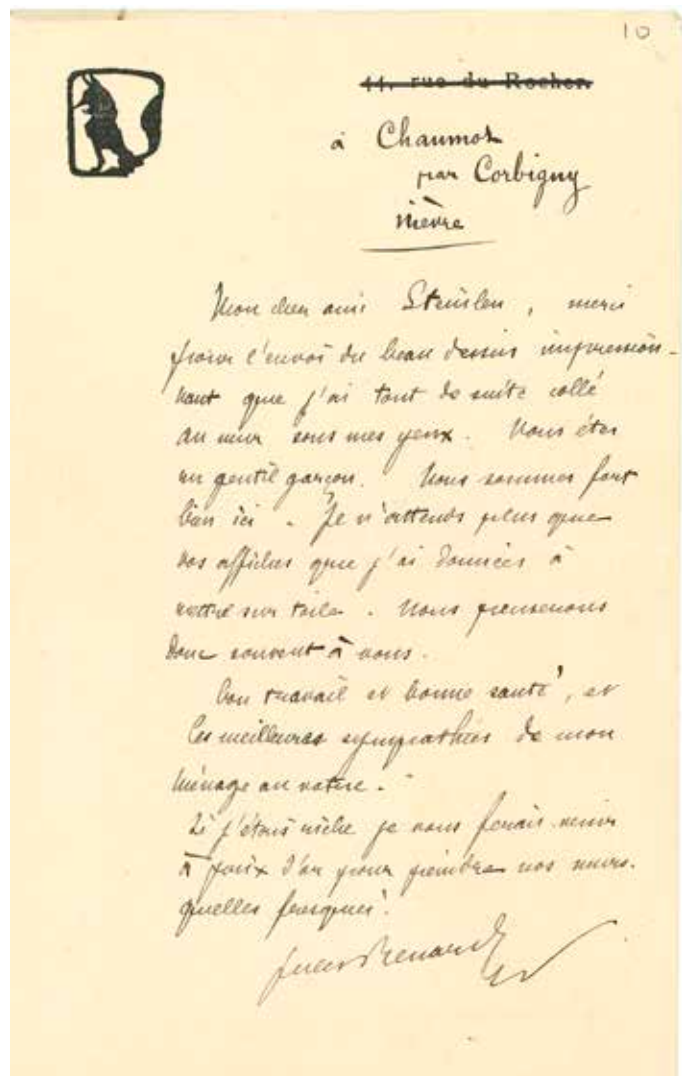 10
44, rue du Rocher.
à Chaumot
par Corbigny
Nièvre
Mon cher ami Steinlen, merci
pour l'envoi du beau dessin impression-
nant que j'ai tout de suite collé
au mur sous mes yeux. Vous êtes
un gentil garçon. Nous sommes fort
bien ici. Je n'attends plus que
vos affiches que j'ai données à
mettre sur toile. Nous penserons
donc souvent à vous.
Bon travail et bonne santé, et
les meilleures sympathies de mon
ménage au vôtre.
Si j'étais riche je vous ferais venir
à prix d'or pour peindre nos murs.
quelles fresques!
Jules Renard